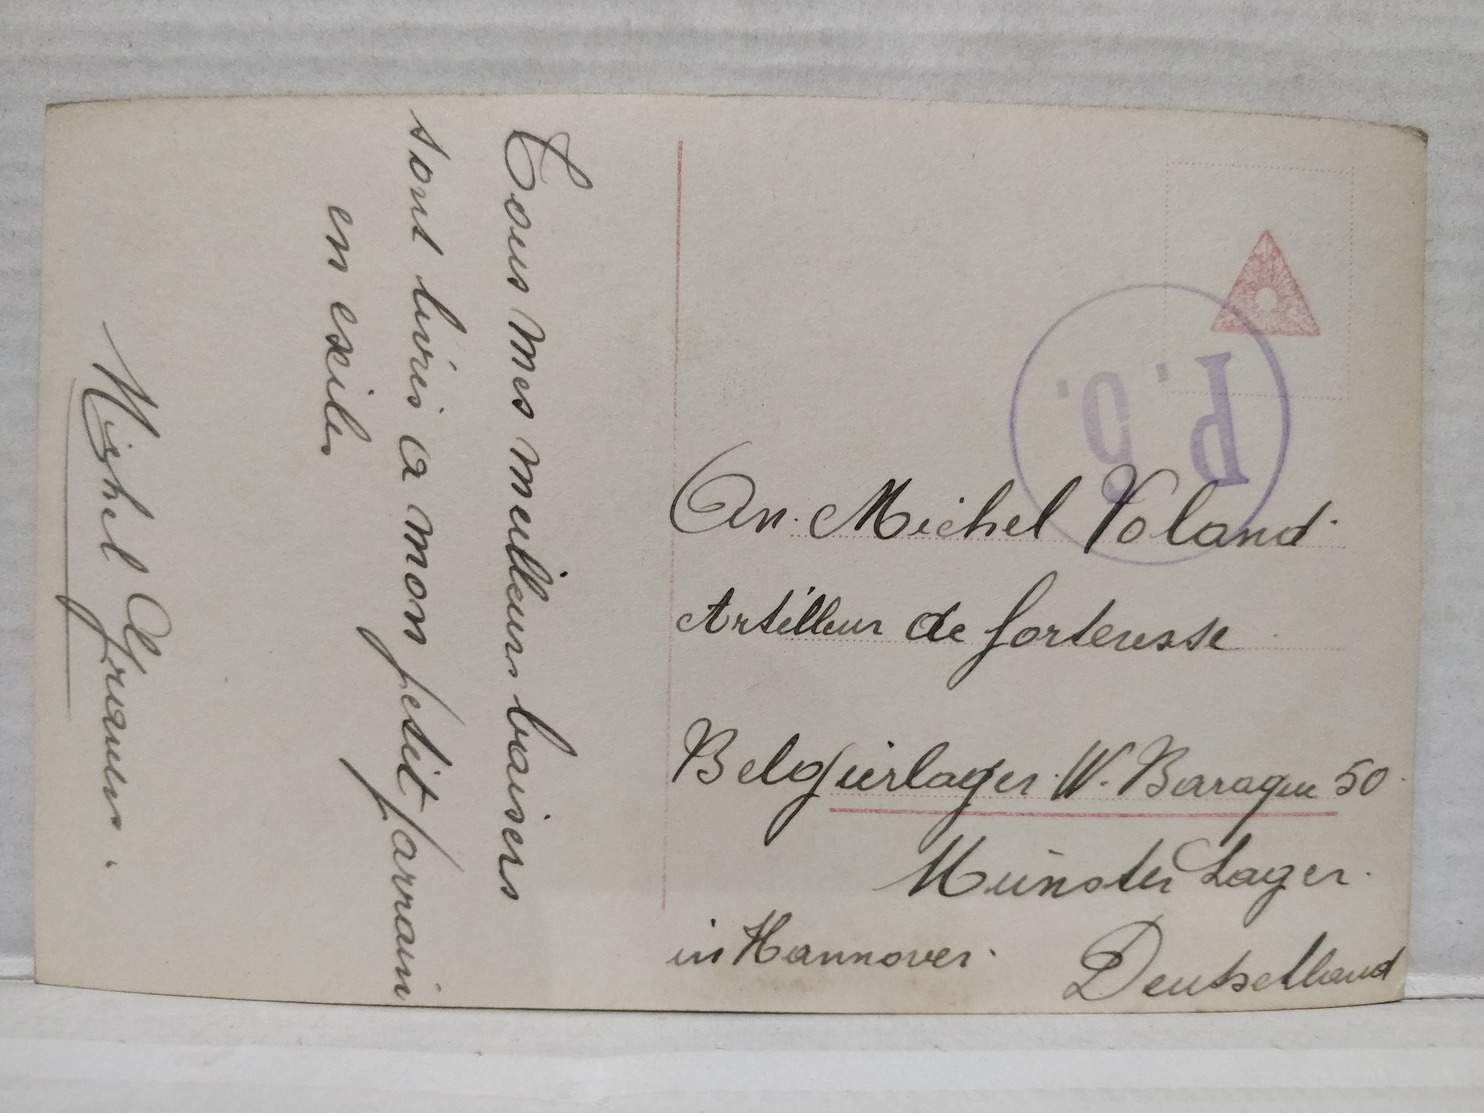 Tous mes meilleurs baisers
sont livrés a mon petit parrain
en exiler
Michel
P.G.
An. Michel Voland.
Artilleur de forteresse
Belgierlager. W. Baraque 50.
Münster Lager.
in Hannover.
Deutschland